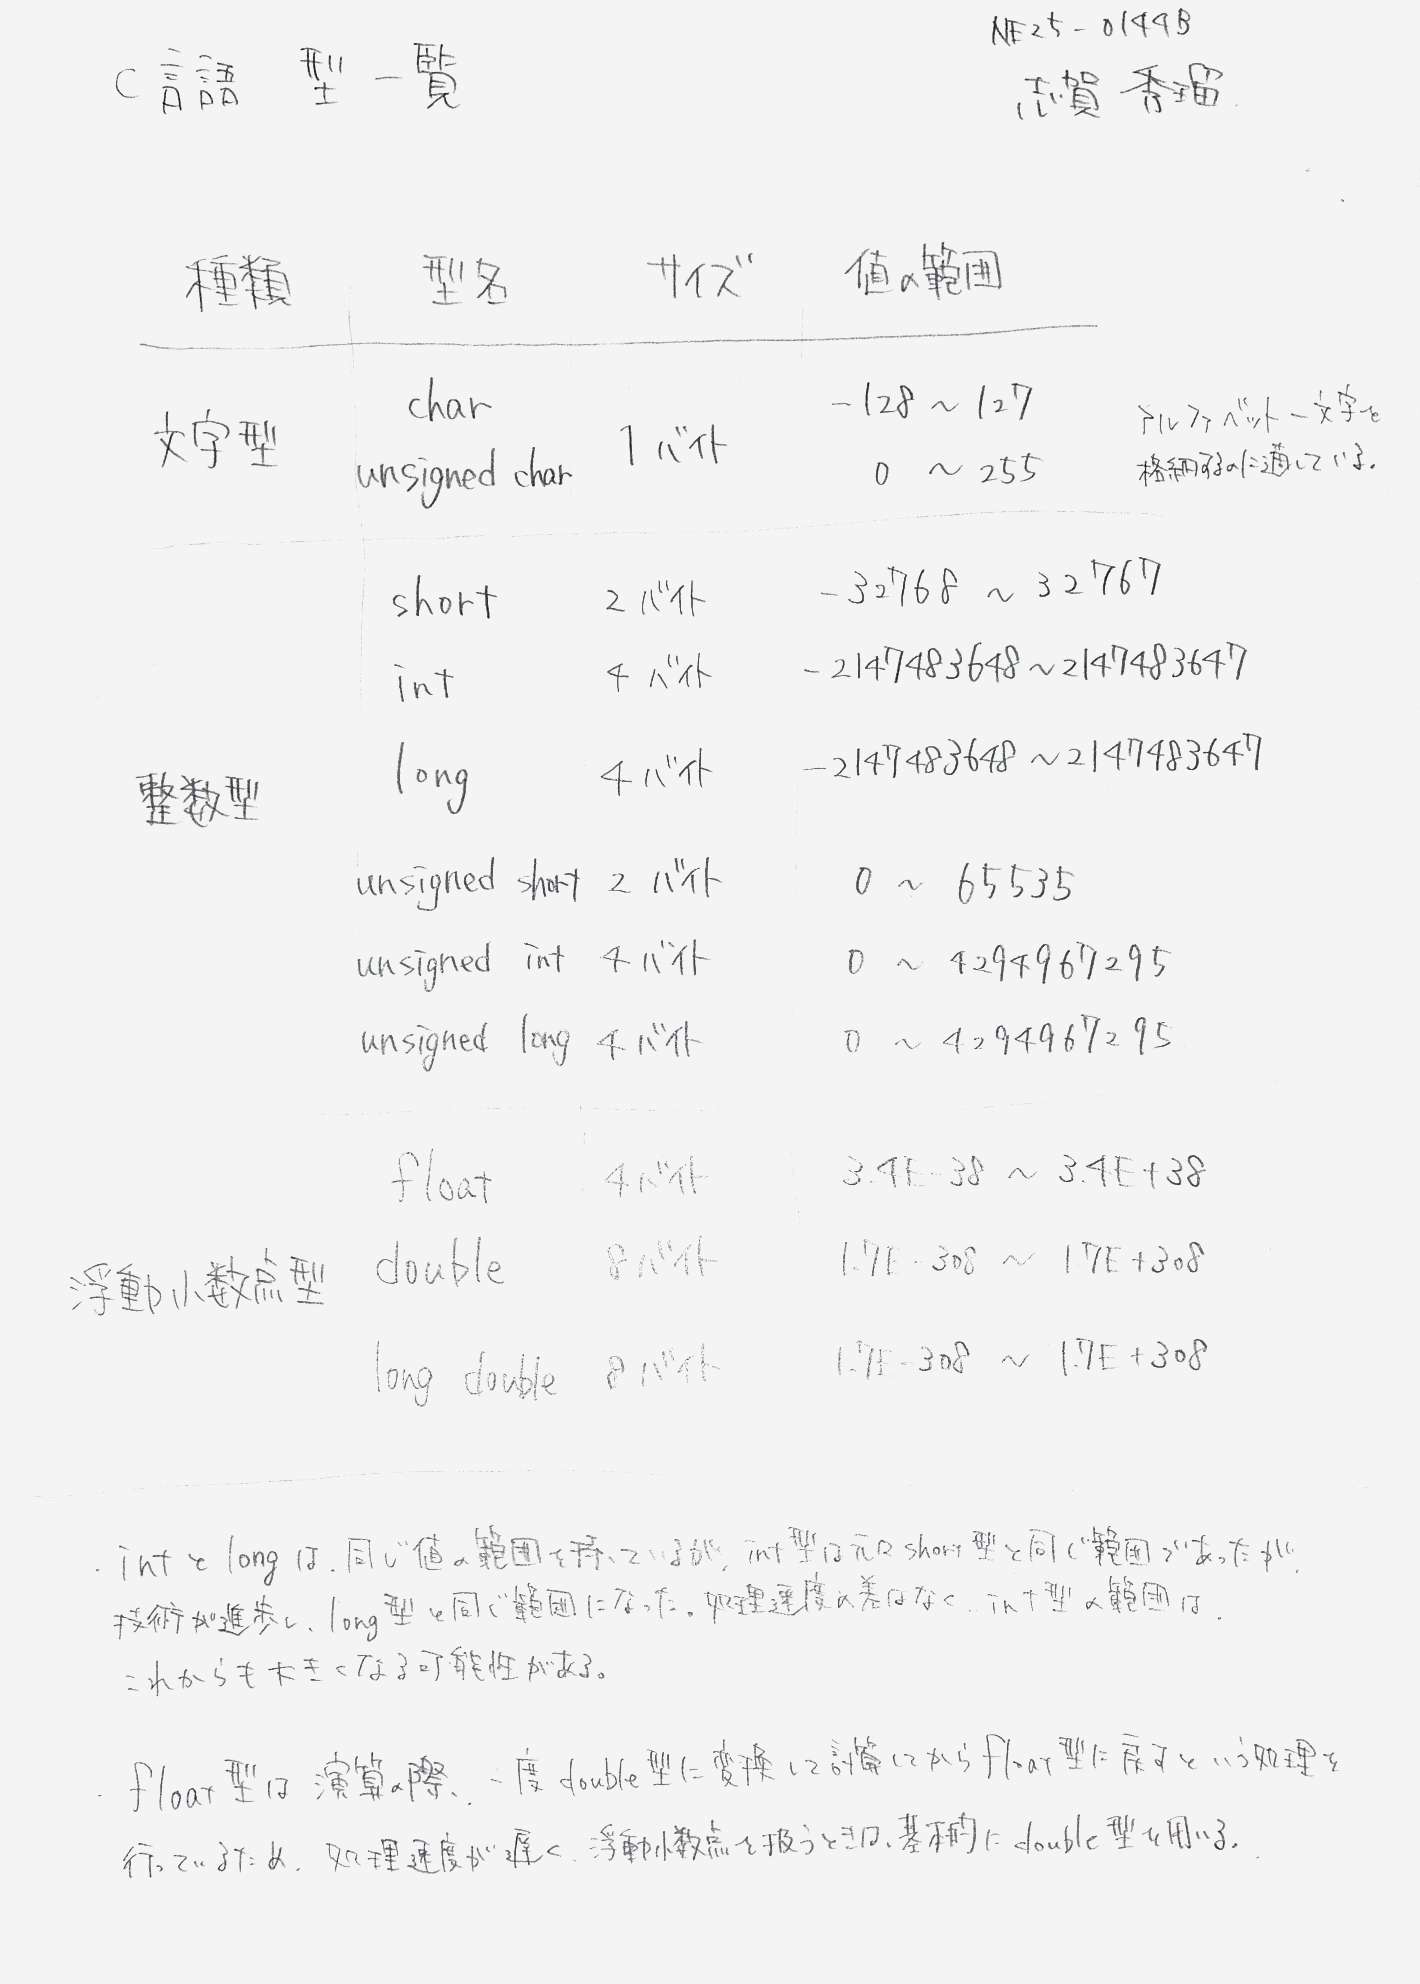 NE25-0144B
C言語 型一覧
志賀 秀瑠
種類 型名 サイズ 値の範囲
char -128 ~ 127 アルファベット一文字を
文字型 1バイト
unsigned char 0 ~ 255 格納するのに適している。
short 2バイト -32768 ~ 32767
int 4バイト -2147483648~2147483647
long 4バイト -2147483648~2147483647
整数型
unsigned short 2バイト 0 ~ 65535
unsigned int 4バイト 0 ~ 4294967295
unsigned long 4バイト 0 ~ 4294967295
float 4バイト 3.4E-38 ~ 3.4E+38
double 8バイト 1.7E-308 ~ 1.7E+308
浮動小数点型
long double 8バイト 1.7E-308 ~ 1.7E+308
・intとlongは、同じ値の範囲を持っているが、int型は元々short型と同じ範囲であったが、
技術が進歩し、long型と同じ範囲になった。処理速度の差はなく、int型の範囲は、
これからも大きくなる可能性がある。
・float型は演算の際、一度double型に変換して計算してからfloat型に戻すという処理を
行っているため、処理速度が遅く、浮動小数点を扱うときは、基本的にdouble型を用いる。